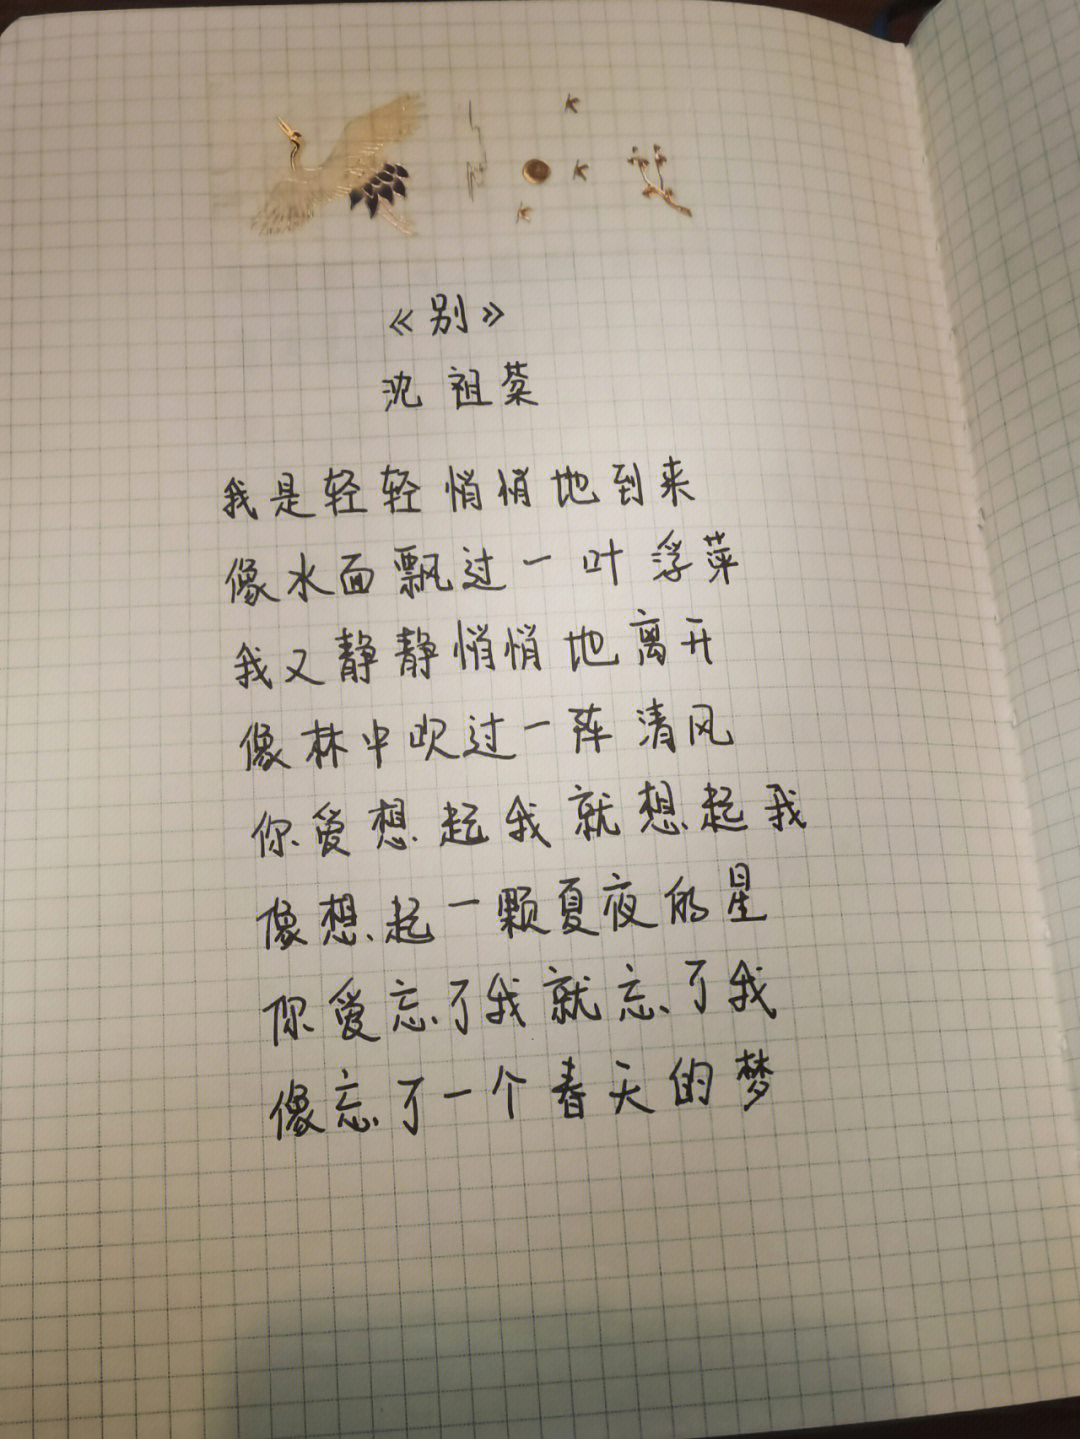 《别》
沈祖棻
我是轻轻悄悄地到来
像水面飘过一叶浮萍
我又静静悄悄地离开
像林中吹过一阵清风
你爱想起我就想起我
像想起一颗夏夜的星
你爱忘了我就忘了我
像忘了一个春天的梦